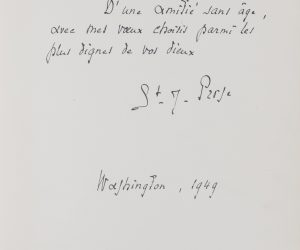 D'une amitié sans âge,
avec mes vœux choisis parmi les
plus dignes de vos dieux
St-J. Perse
Washington, 1949